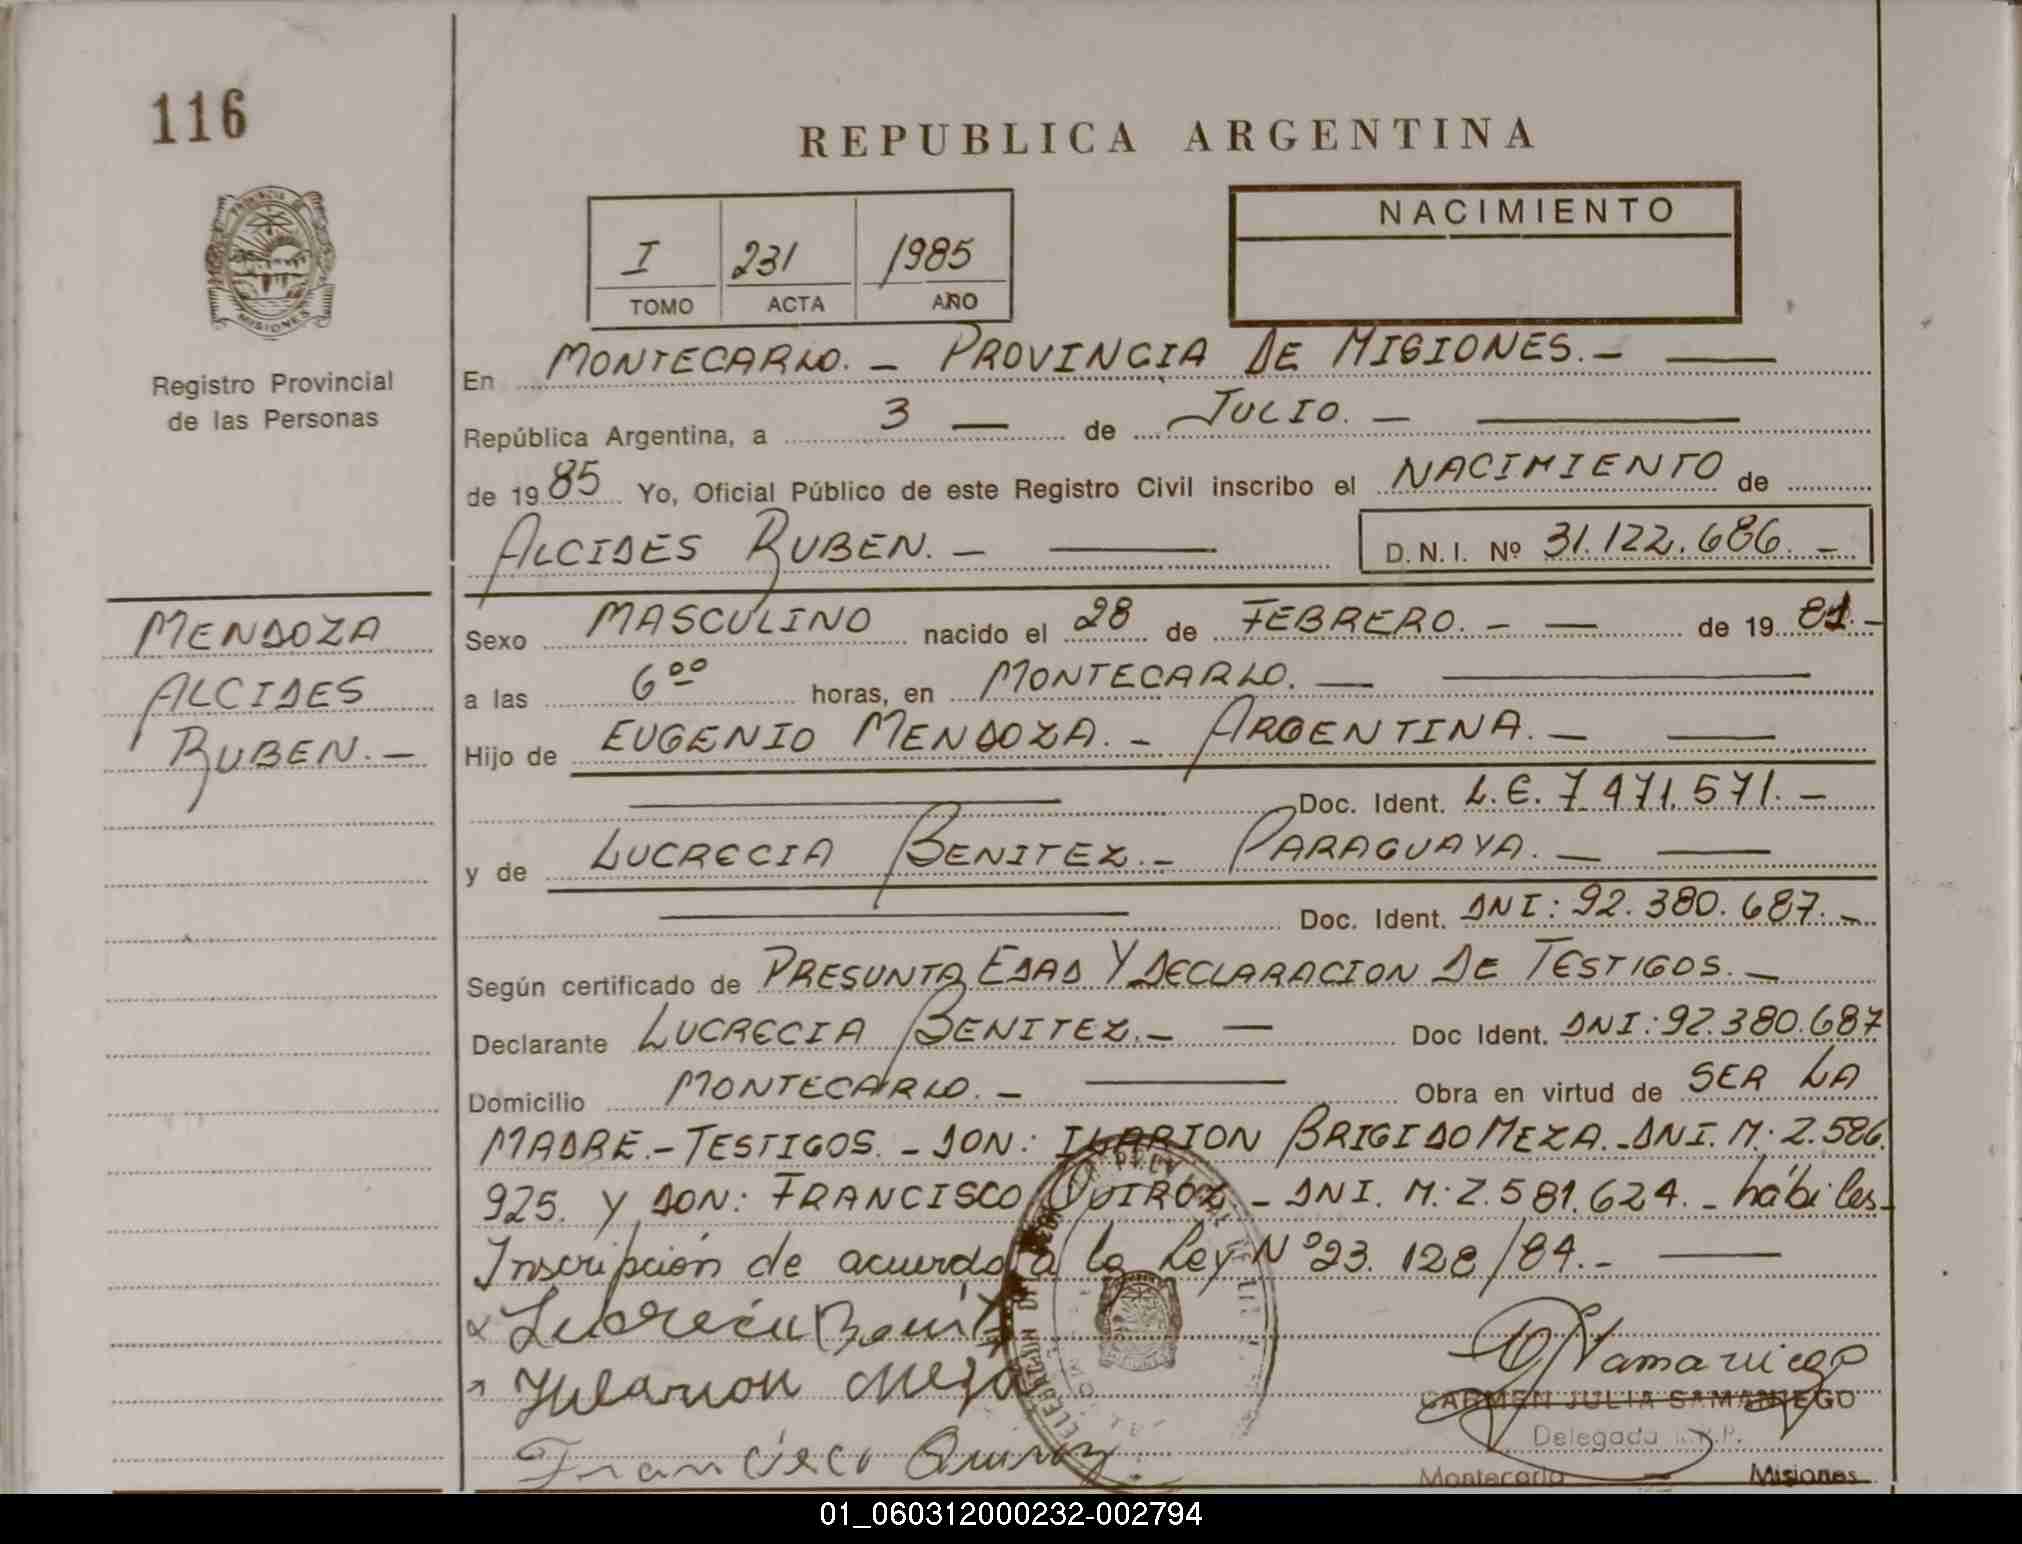 116
REPUBLICA ARGENTINA
PROVINCIA DE
MISIONES
Registro Provincial
de las Personas
I 231 1985
TOMO ACTA AÑO
NACIMIENTO
En MONTECARLO. - PROVINCIA DE MISIONES. -
República Argentina, a 3 — de JULIO. -
de 19 85 Yo, Oficial Público de este Registro Civil inscribo el NACIMIENTO de
ALCIDES RUBEN. - D.N.I. Nº 31.122.686. -
MENDOZA
ALCIDES
RUBEN. -
Sexo MASCULINO nacido el 28 de FEBRERO. - — de 19 81. -
a las 6 00 horas, en MONTECARLO. —
Hijo de EUGENIO MENDOZA. - ARGENTINA. -
Doc. Ident. L.E. 7.471.571. -
y de LUCRECIA BENITEZ. - PARAGUAYA. -
Doc. Ident. DNI: 92.380.687. -
Según certificado de PRESUNTA EDAD Y DECLARACION DE TESTIGOS. -
Declarante LUCRECIA BENITEZ. - — Doc Ident. DNI: 92.380.687
Domicilio MONTECARLO. - Obra en virtud de SER LA
MADRE. - TESTIGOS. - DON: ILARION BRIGIDO MEZA. - DNI. M: 2.586.
925. Y DON: FRANCISCO QUIROZ - DNI. M: 2.581.624. - hábiles -
Inscripción de acuerdo a la Ley Nº 23.128/84. -
Lucrecia Benit
Hilarion Meza
Francisco Quiroz
CARMEN JULIA SAMANIEGO
Delegada R.P.P.
Montecarlo - Misiones
01_060312000232-002794